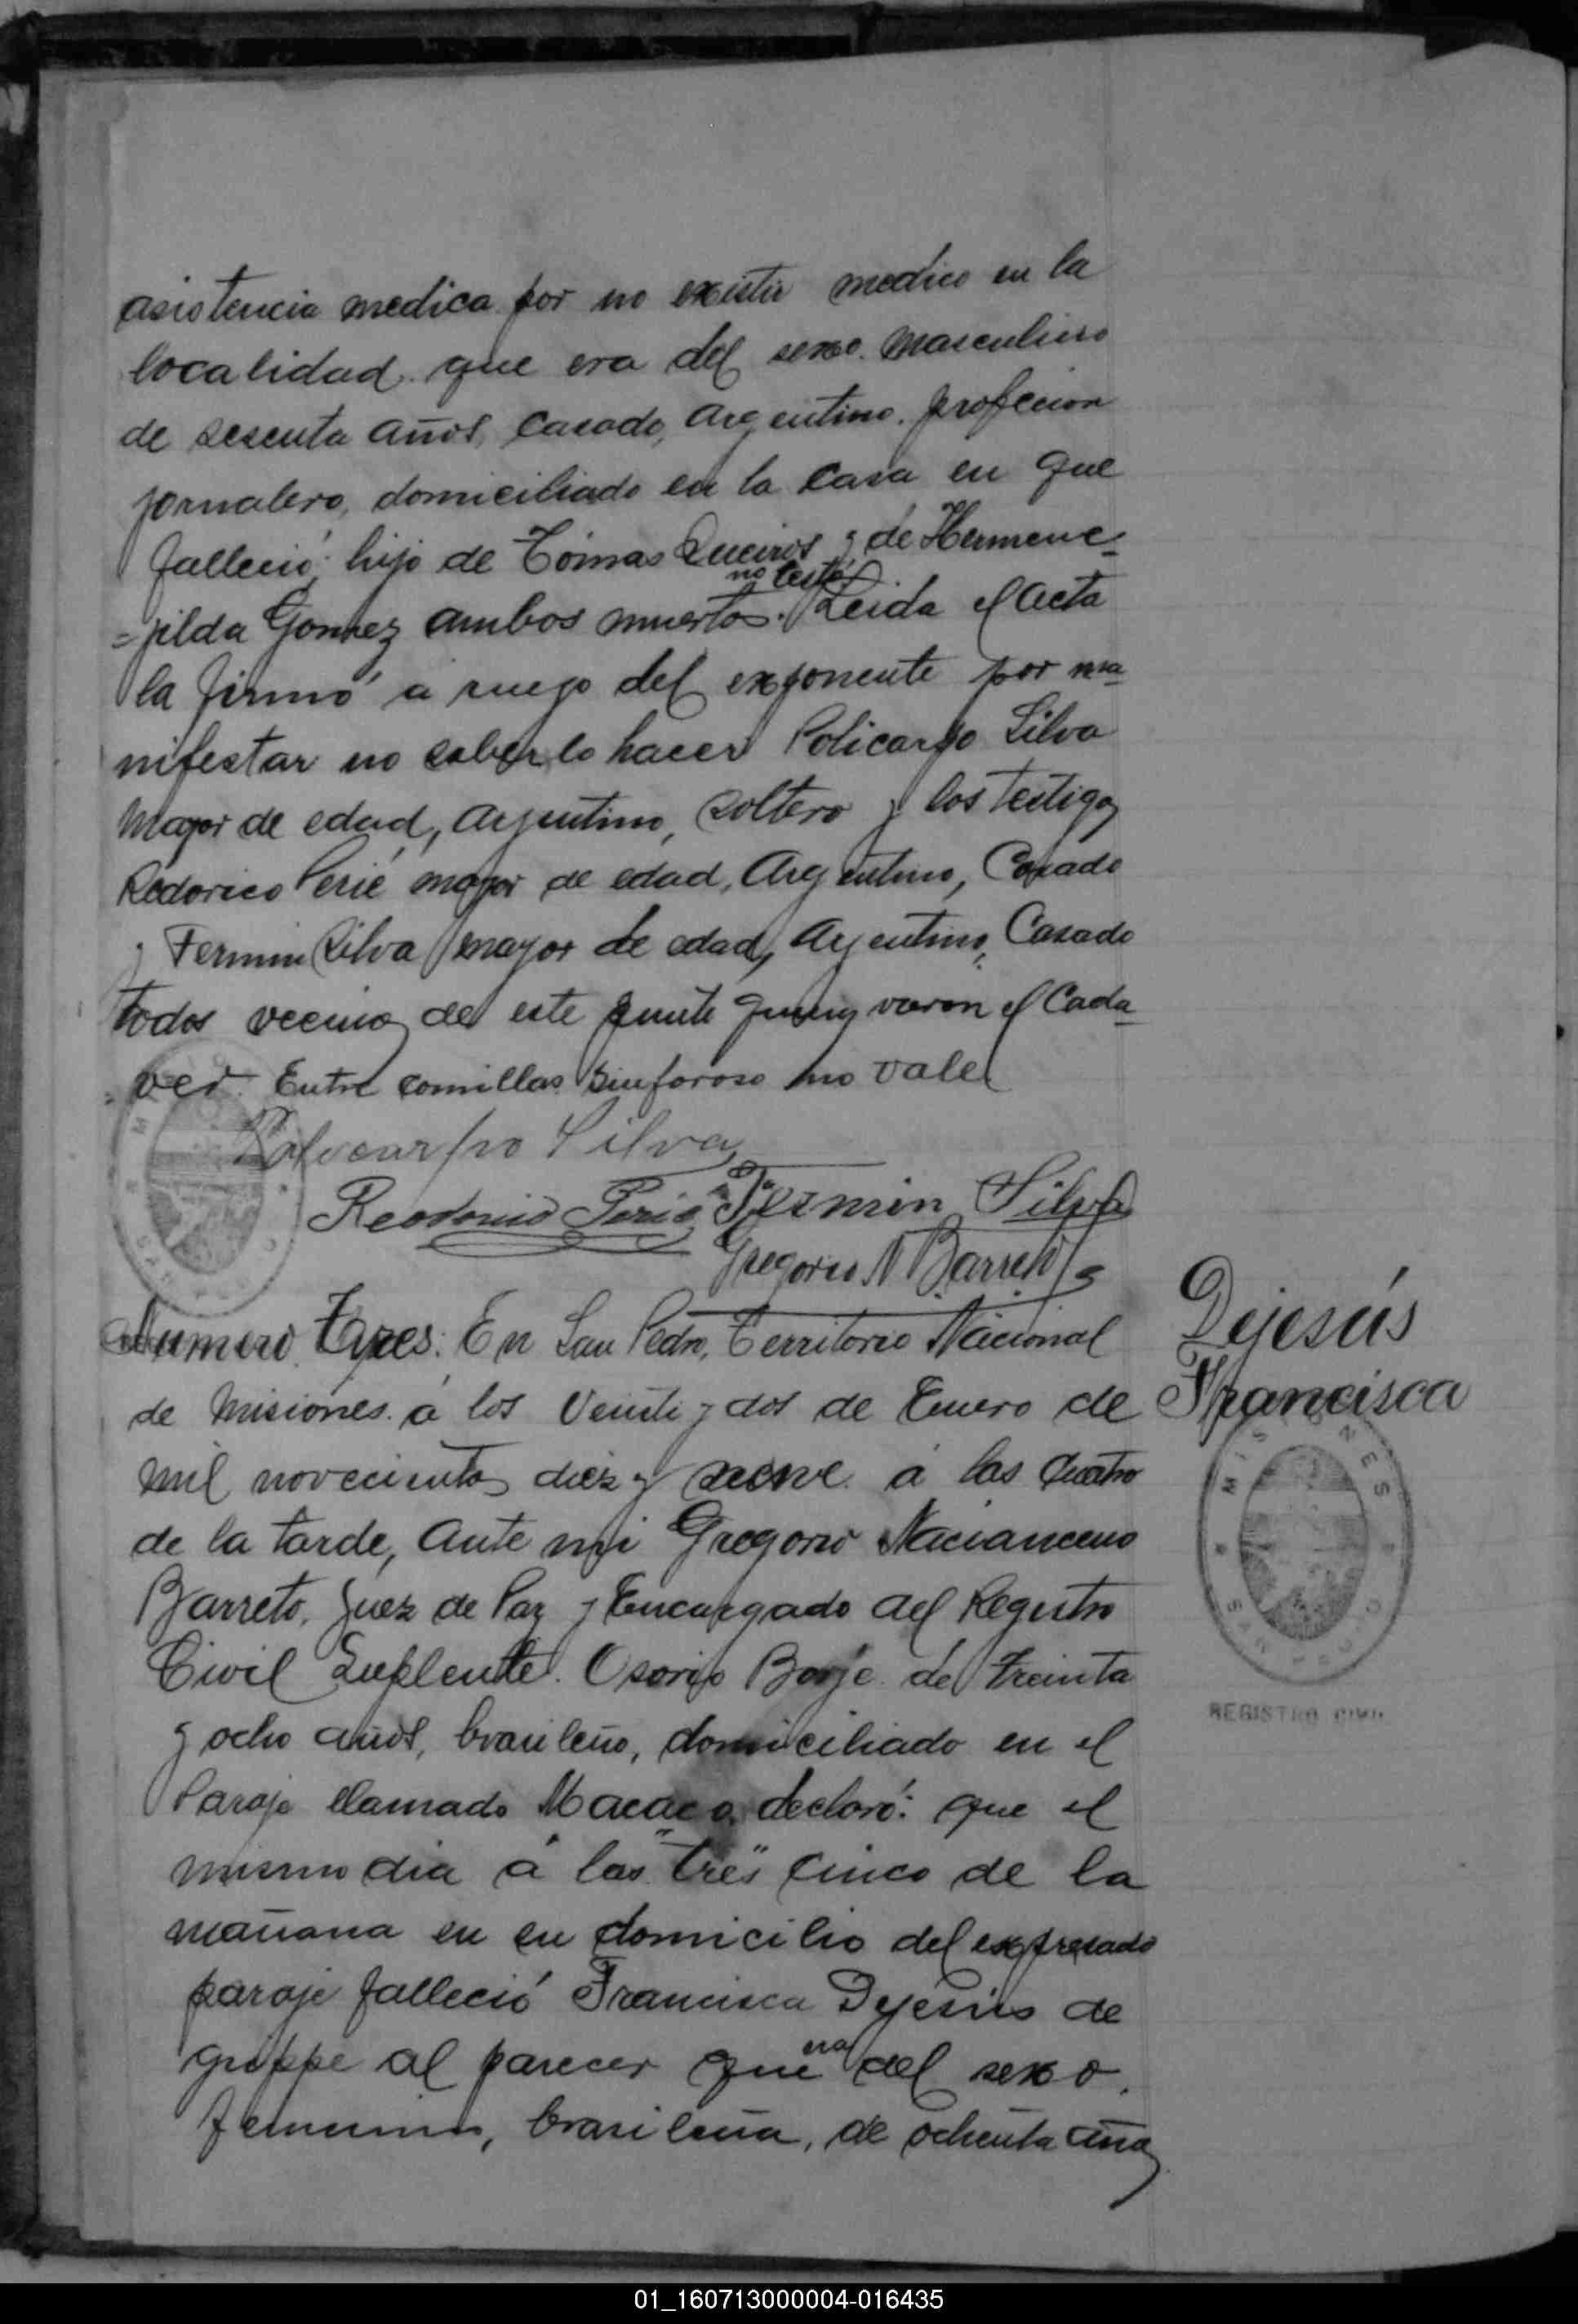 asistencia medica por no existir medico en la
localidad. que era del sexo. masculino
de sesenta años, casado, argentino. profecion
jornalero, domiciliado en la casa en que
falleció; hijo de Tómas Queiros y de Hermene-
no testó
=jilda Gomez ambos muertos. Leida el acta
la firmó á ruego del exponente por ma-
nifestar no saberlo hacer Policarpo Silva
mayor de edad, argentino, soltero y los testigos
Redorico Perié mayor de edad, Argentino, Casado
y Fermin Silva mayor de edad, argentino, Casado
todos vecinos de este punto quienes vieron el Cada-
ver. Entre comillas Sinforoso no vale
Polycarpo Silva
Perié Fermin Silva
Gregorio N Barreto
Numero Tres: En San Pedro, Territorio Nacional
de Misiones. á los Veinte y dos de Enero de
mil novecientos diez y nueve á las cuatro
de la tarde, ante mi Gregorio Nacianceno
Barreto. Juez de Paz y Encargado del Registro
Civil Suplente. Osorio Borje de treinta
y ocho años, brasileño, domiciliado en el
Paraje llamado Macaco. declaró: que el
mismo dia á las "tres" cinco de la
mañana en su domicilio del expresado
paraje falleció Francisca Dejesús de
grippe al parecer que era del sexo.
femenino, brasileña, de ochenta años
Dejesús
Francisca
MISIONES
SAN PEDRO
REGISTRO CIVIL
01_160713000004-016435